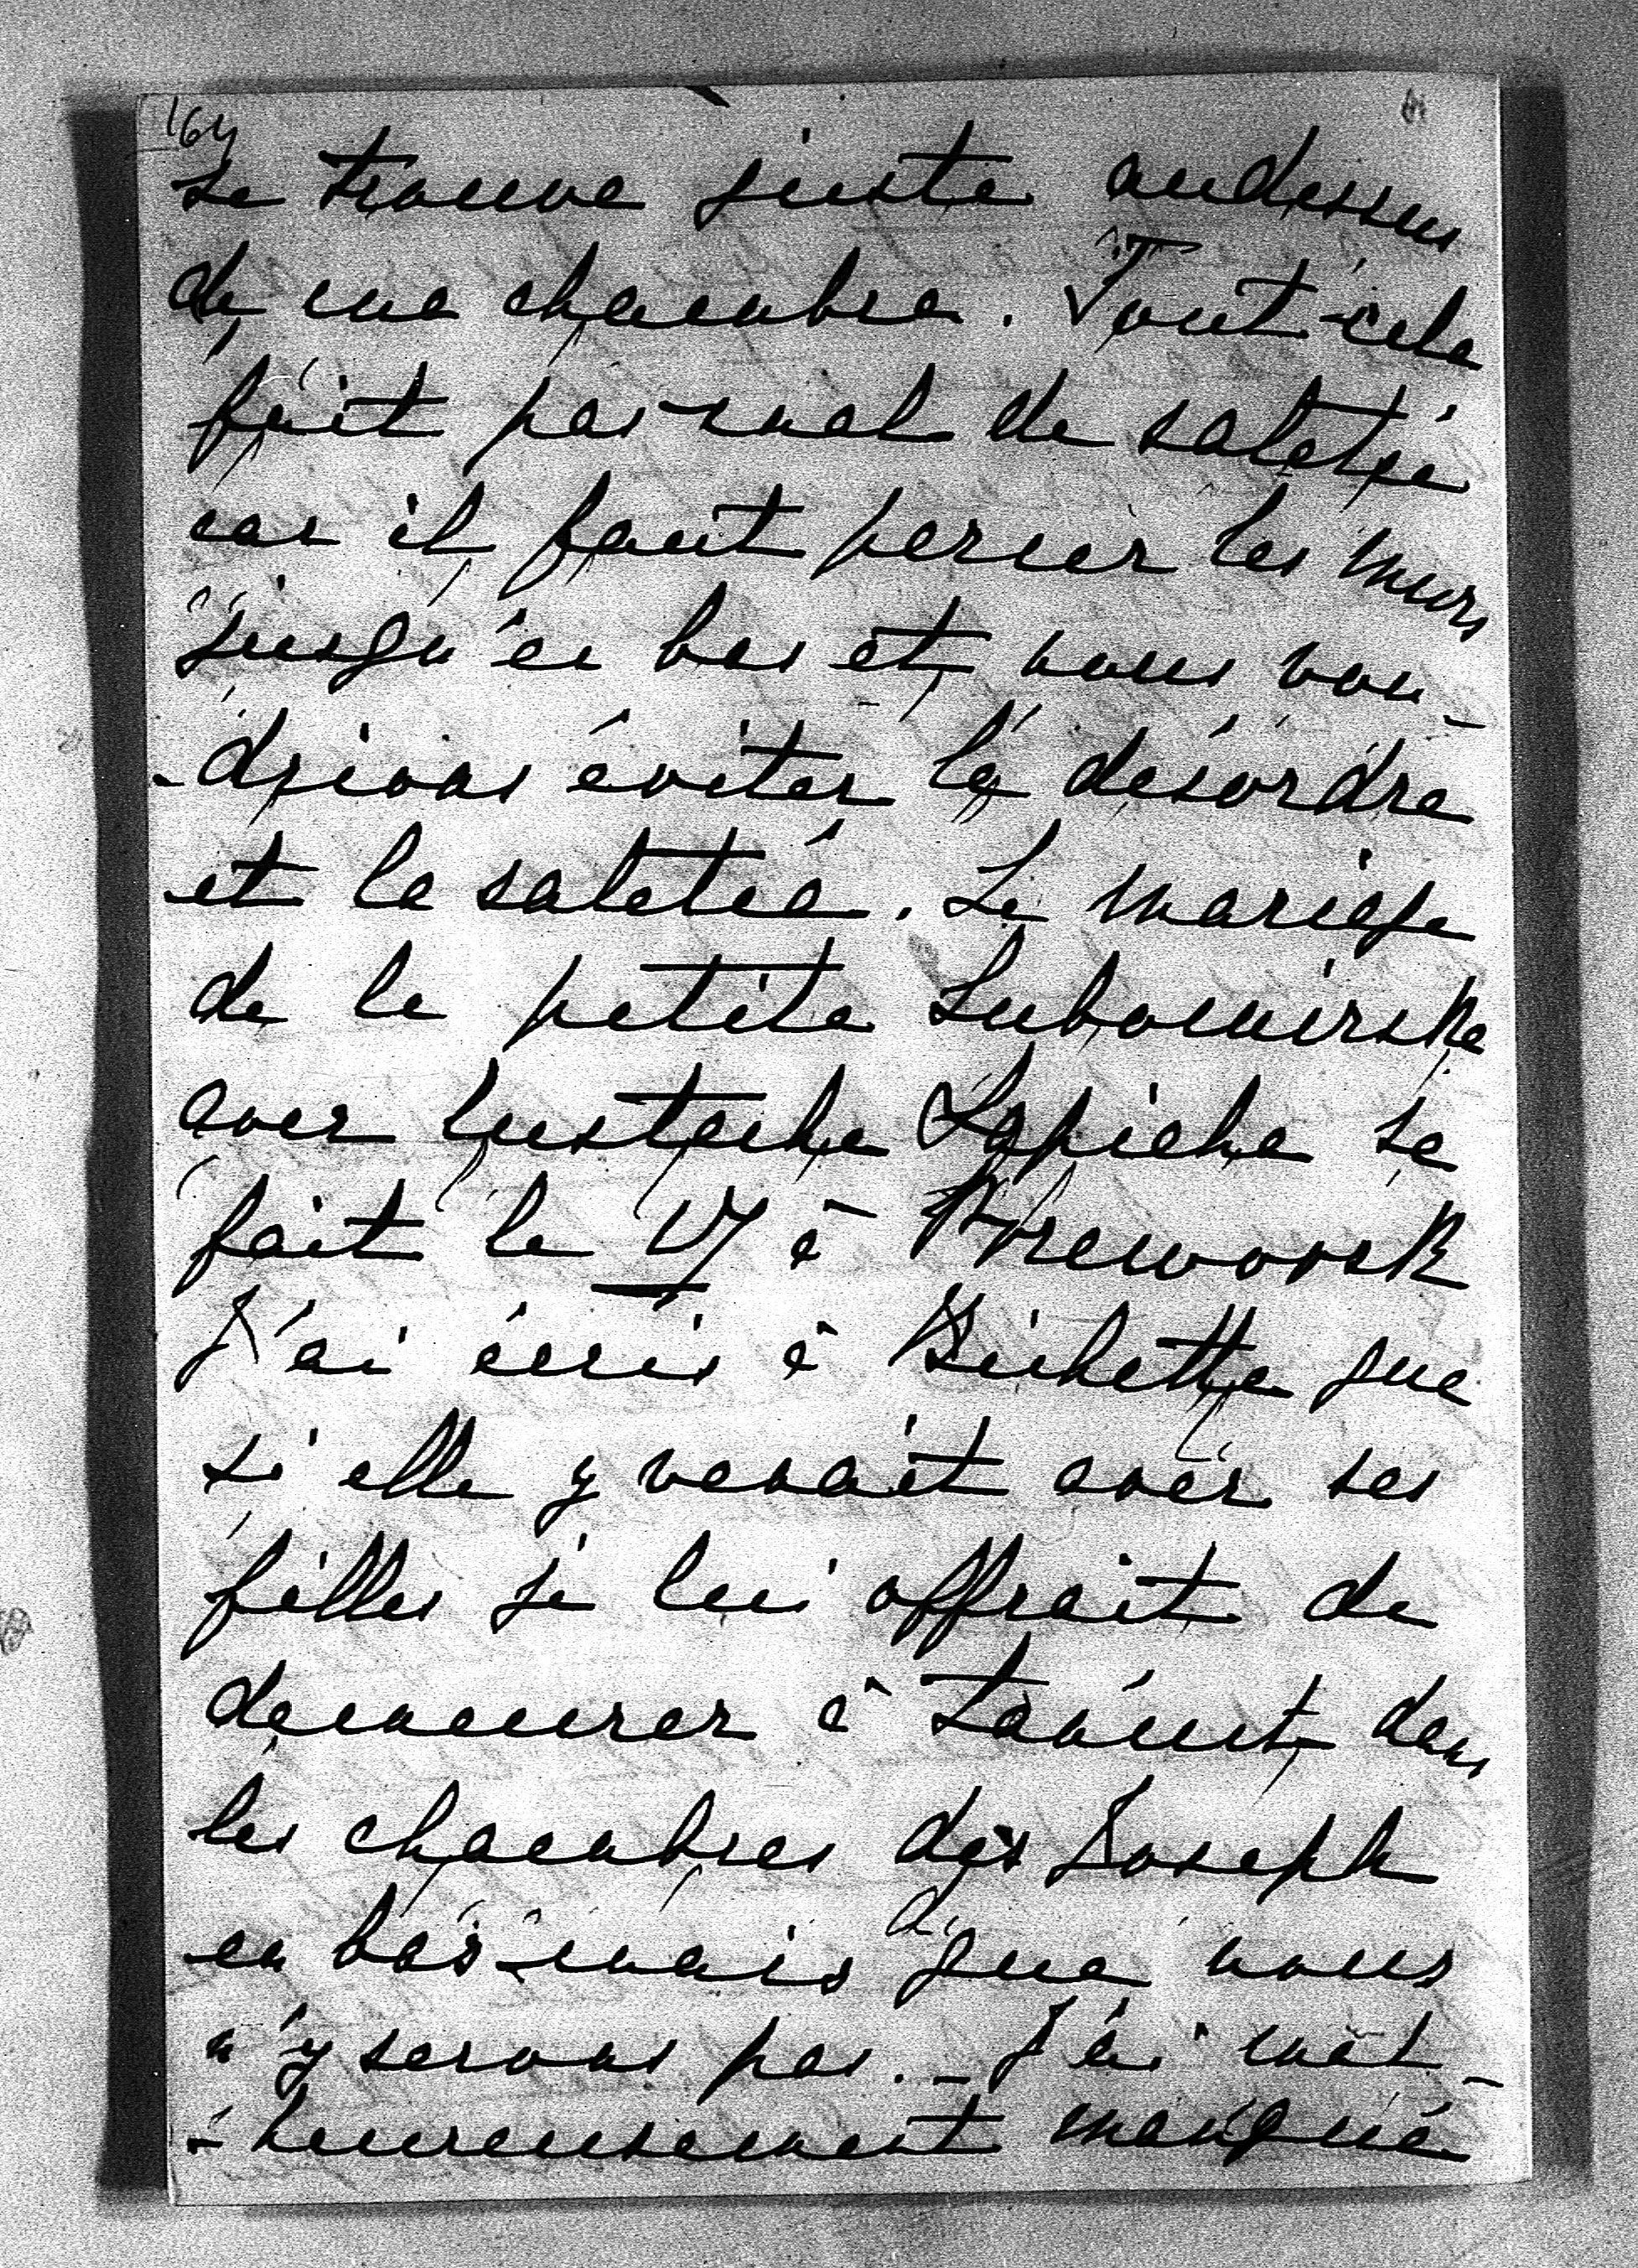 164
se trouve juste audessus
de ma chambre. Tout cela
fait pas mal de saletée
car il faut percer les murs
jusqu'en bas et nous vou-
-drions éviter le désordre
et la saletée. Le mariage
de la petite Lubomirska
avec Eustache Sapieha se
fait le à Przeworsk
J'ai écris à Bichette que
si elle y venait avec ses
filles je lui offrait de
demeurer à Łańcut dans
les chambres des Joseph
en bas mais que nous
n'y serons pas. - J'ai mal-
-heureusement manqué